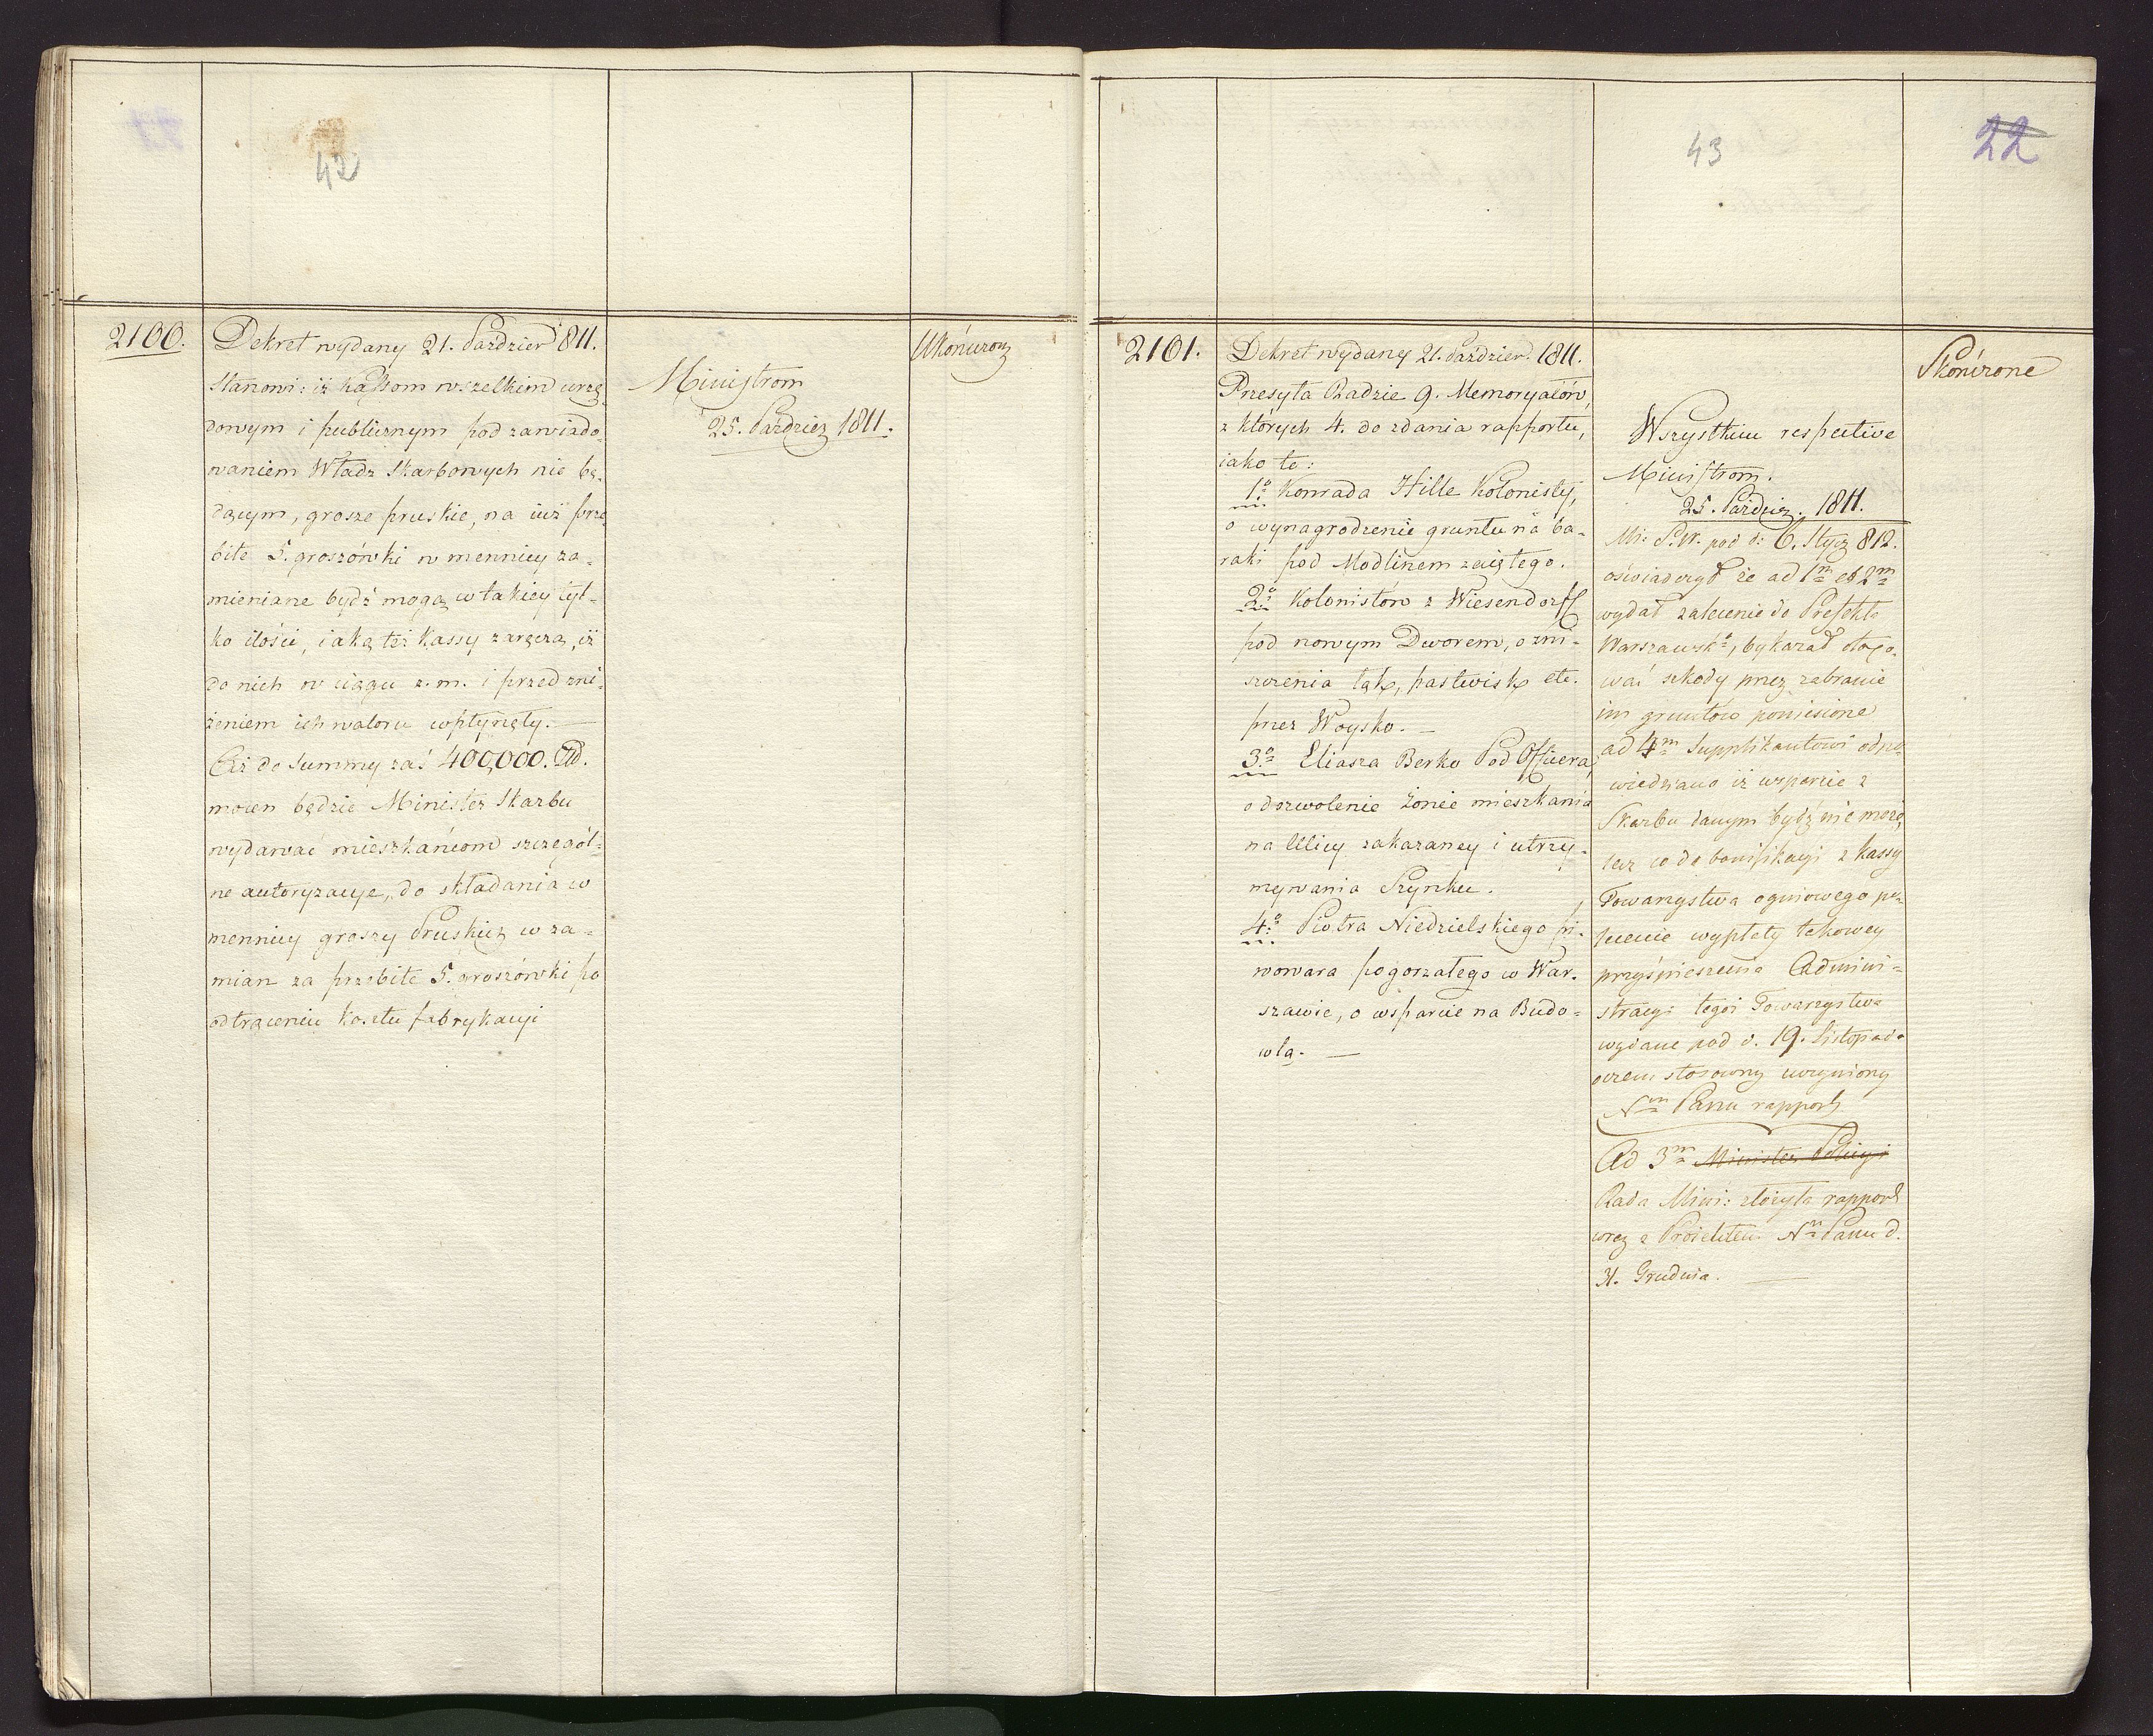 42
2100.
Dekret wydany 21. Paździer 811.
stanowi: iż Kassom wszelkim urzę-
dowym i publicznym pod zawiado-
waniem Władz Skarbowych nie bę-
dącym, grosze pruskie, na iuż prze
bite 5. groszówki w mennicy za-
mieniane bydź mogą w takiey tyl-
ko ilości, iaką też Kassy zaręczą, iż
do nich w ciągu z. m. i przed zni-
żeniem ich waloru wpłynęły. —
Aż do Summy zaś 400,000. Zł.
mocen będzie Minister Skarbu
wydawać mieszkańcom szczegól-
ne autoryzacye, do składania w
mennicy groszy Pruskich w za-
mian za przebite 5. groszówki po
odtrąceniu kosztu fabrykacyi
Ministrom
25. Paździer 1811.
Ukończony
43
22
2101.
Dekret wydany 21. Paździer. 1811.
Przesyła Radzie 9. Memoryałów,
z których 4. do zdania rapportu,
iako to:
1o Konrada Hille Kolonisty,
o wynagrodzenie gruntu na ba-
raki pod Modlinem zaiętego.
2o Kolonistów z Wiesendorff
pod nowym Dworem, o zni-
szczenia łąk, pastwisk etc.
przez Woysko. —
3o Eliasza Berko Pod Officera,
o dozwolenie żonie mieszkania
na Ulicy zakazaney i utrzy-
mywania Szynku.
4o Piotra Niedzielskiego pi-
wowara pogorzałego w War-
szawie, o wsparcie na Budo-
wlą. —
Wszystkim respective
Ministrom.
25. Paździer. 1811.
Mi: S. W. pod d: 6. Stycz 812.
oświadczył że ad 1m et 2m
wydał zalecenie do Prefekta
Warszawsko, by kazał otaxo-
wać szkody przez zabranie
im gruntów poniesione
ad 4m Supplikantowi odpo-
wiedziano iż wsparcie z
Skarbu danym bydź nie może,
lecz co do bonifikacyi z kassy
Towarzystwa ogniowego po-
lecenie wypłaty takowey
przyśpieszenia Admini-
stracyi tegoż Towarzystwa
wydane pod d. 19. Listopada
oczem stosowny uczyniony
Nmu Panu rapport
Ad 3m Minister Policyi
Rada Mini: złożyła rapport
wraz z Proiektem Nmu Panu d.
31. Grudnia. —
Skończone